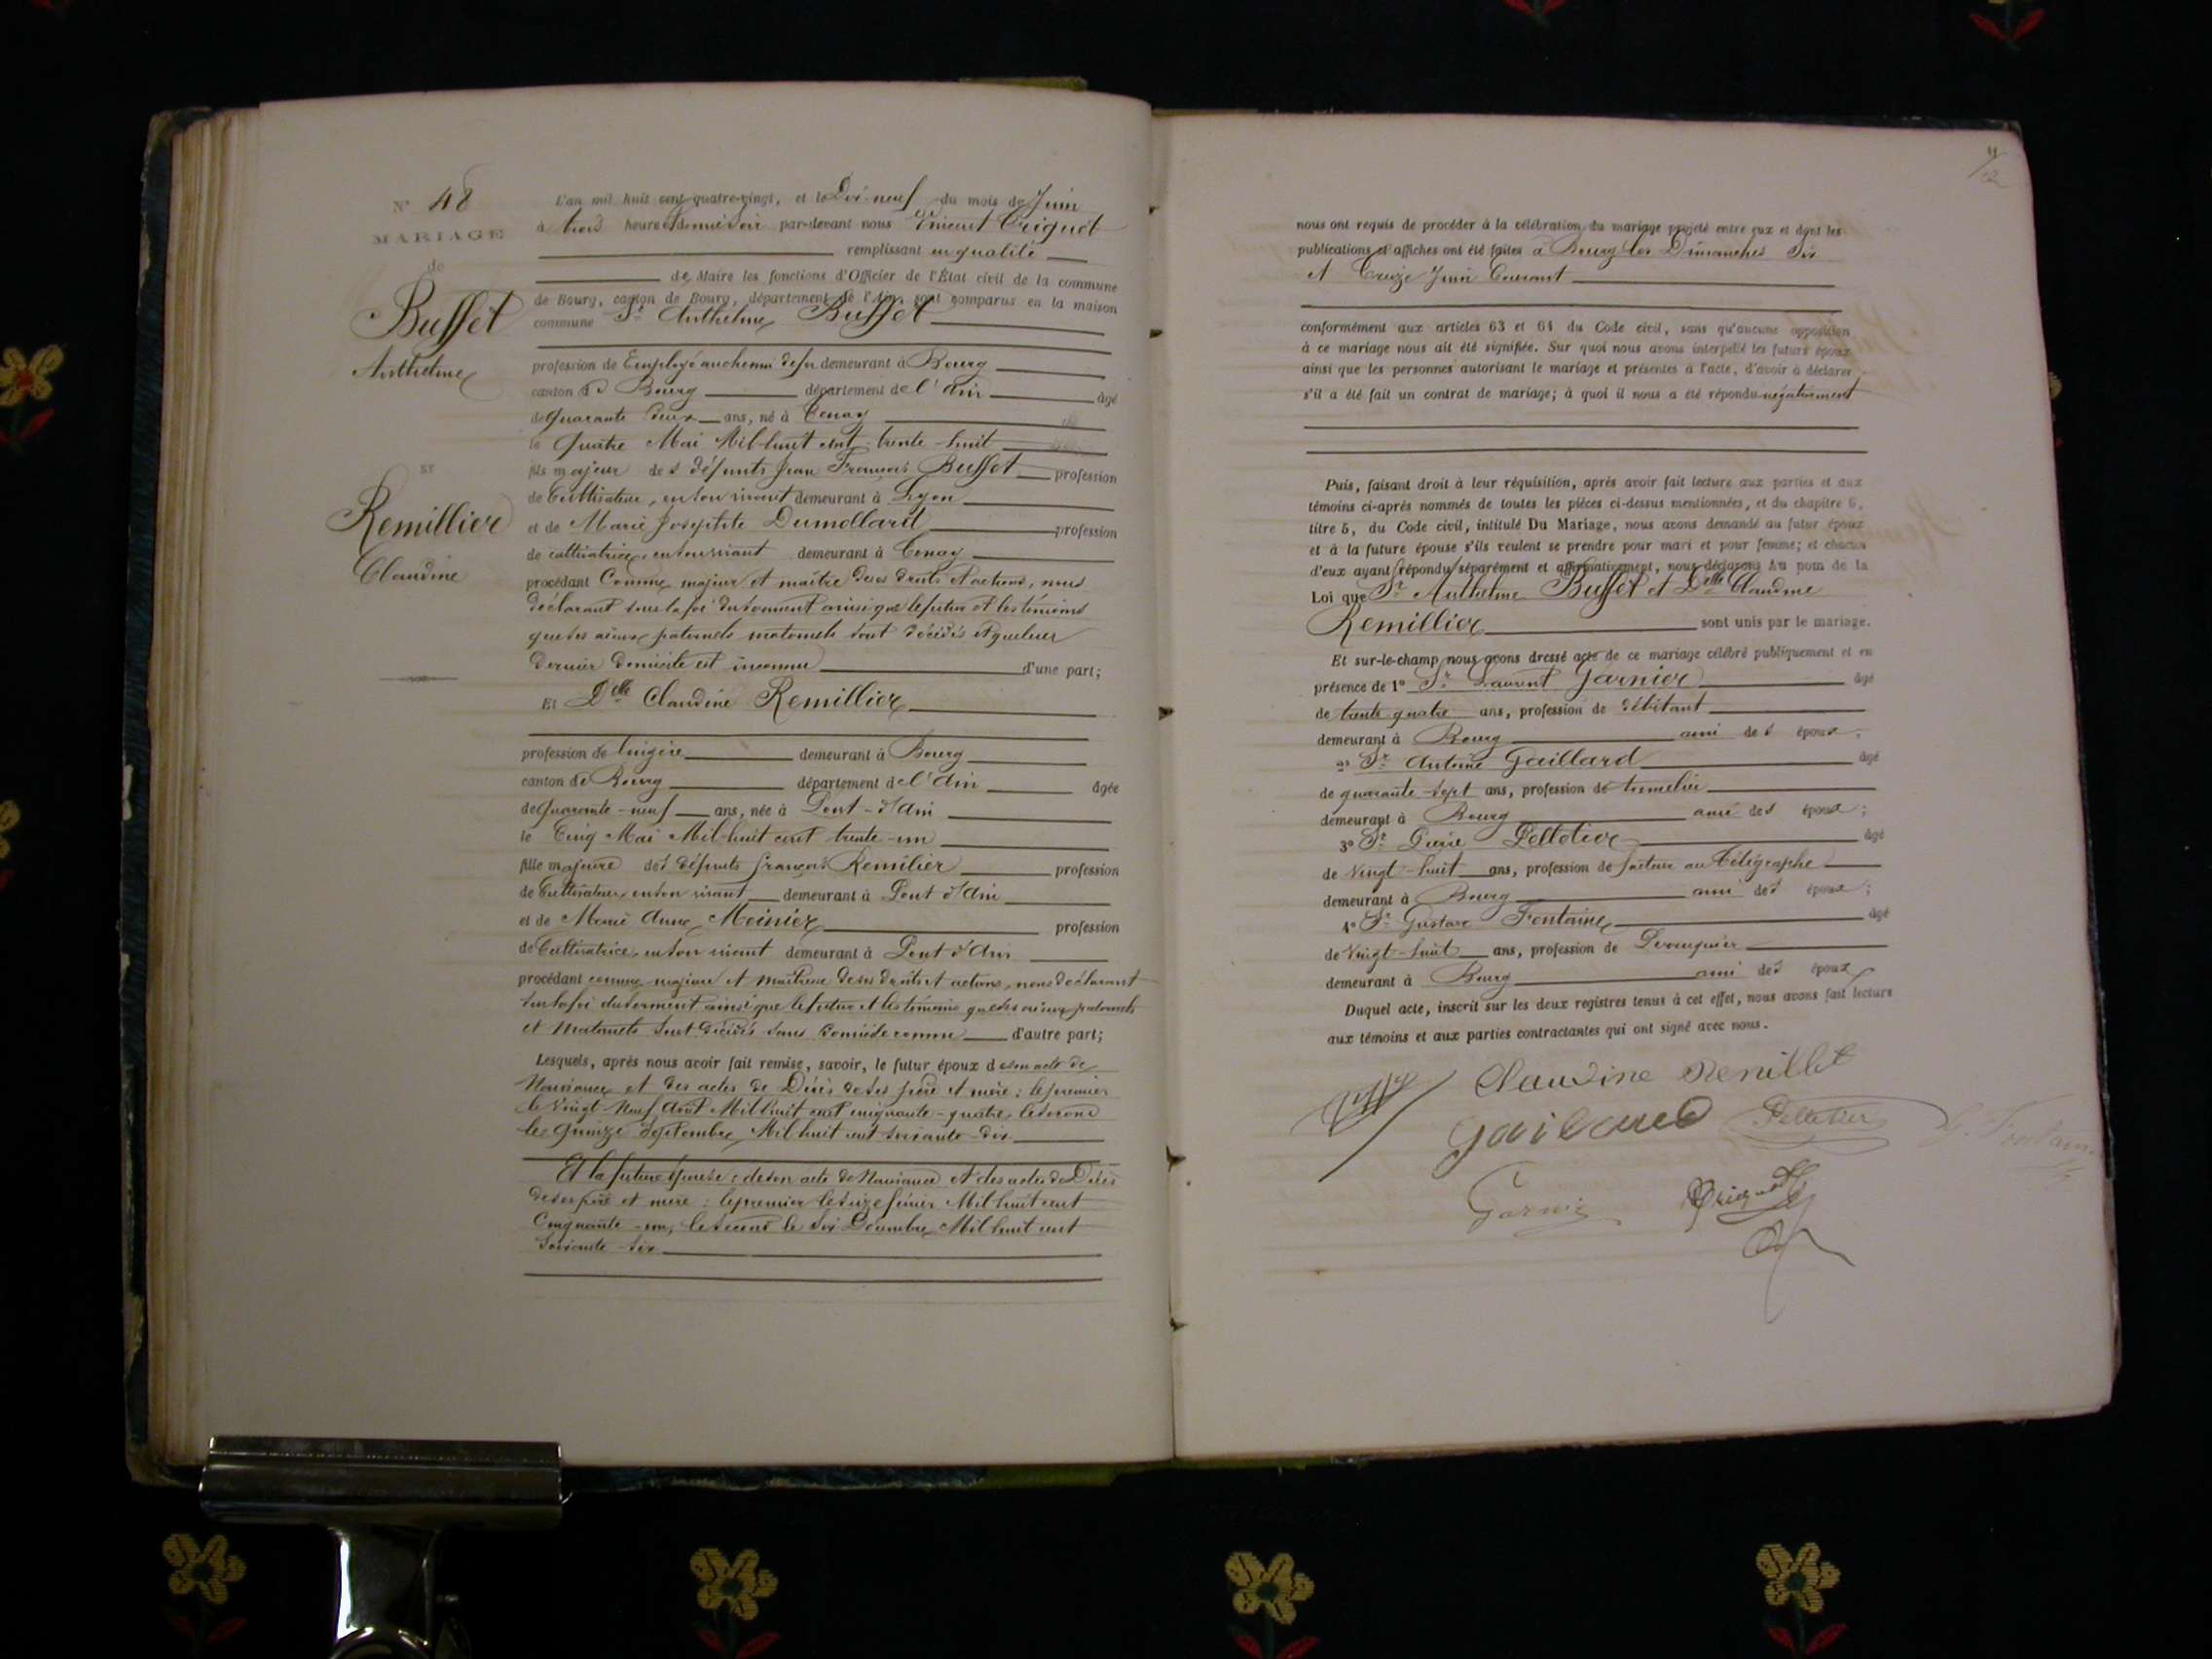 N° 48
MARIAGE
de
Buffet
Anthelme
ET
Remillier
Claudine
L'an mil huit cent quatre-vingt, et le Dix-neuf du mois de Juin
à trois heures et demie soir par-devant nous Vincent
remplissant en qualité
de Maire les fonctions d'Officier de l'État civil de la commune
de Bourg, canton de Bourg, département de l'Ain, sont comparus en la maison
commune Sr Anthelme Buffet
profession de Employé au chemin de fer demeurant à Bourg
canton de Bourg département de l'Ain âgé
de quarante deux ans, né à Tenay
le Quatre Mai Mil-huit cent trente-huit
fils majeur des défunts Jean François Buffet profession
de Cultivateur, en son vivant demeurant à Lyon
et de Marie Josephte Dumollard profession
de cultivatrice, en son vivant demeurant à Tenay
procédant Comme majeur et maître de ses droits et actions, nous
déclarant sous la foi du serment ainsi que la future et les témoins
que ses aïeux paternels maternels sont décédés et que leur
dernier domicile est inconnu d'une part;
Et Delle Claudine Remillier
profession de lingère demeurant à Bourg
canton de Bourg département de l'Ain âgée
de Quarante-neuf ans, née à Pont-d'Ain
le Cinq Mai Mil-huit cent trente-un
fille majeure des défunts François Remilier profession
de Cultivateur, en son vivant demeurant à Pont d'Ain
et de Marie Anne Meinier profession
de Cultivatrice, en son vivant demeurant à Pont d'Ain
procédant comme majeure et maîtresse de ses droits et actions, nous déclarant
sous la foi du serment ainsi que le futur et les témoins que ses aïeux paternels
et maternels sont décédés sans domicile connu d'autre part;
Lesquels, après nous avoir fait remise, savoir, le futur époux de son acte de
Naissance et des actes de Décès de ses père et mère: le premier
le Vingt-Neuf Août Mil huit cent cinquante-quatre, le second
le Quinze Septembre Mil huit cent soixante-dix
Et la future épouse: de son acte de Naissance et des actes de Décès
de ses père et mère: le premier le seize février Mil huit cent
Cinquante-un, le second le dix Décembre Mil huit cent
Soixante-six
nous ont requis de procéder à la célébration du mariage projeté entre eux et dont les
publications et affiches ont été faites à Bourg les Dimanches Six
et Treize Juin Courant
conformément aux articles 63 et 64 du Code civil, sans qu'aucune opposition
à ce mariage nous ait été signifiée. Sur quoi nous avons interpellé les futurs époux
ainsi que les personnes autorisant le mariage et présentes à l'acte, d'avoir à déclarer
s'il a été fait un contrat de mariage; à quoi il nous a été répondu négativement
Puis, faisant droit à leur réquisition, après avoir fait lecture aux parties et aux
témoins ci-après nommés de toutes les pièces ci-dessus mentionnées, et du chapitre 6,
titre 5, du Code civil, intitulé Du Mariage, nous avons demandé au futur époux
et à la future épouse s'ils veulent se prendre pour mari et pour femme; et chacun
d'eux ayant répondu séparément et affirmativement, nous déclarons Au nom de la
Loi que Sr Anthelme Buffet et Delle Claudine
Remillier sont unis par le mariage.
Et sur-le-champ nous avons dressé acte de ce mariage célébré publiquement et en
présence de 1° Sr Laurent Garnier âgé
de trente quatre ans, profession de débitant
demeurant à Bourg ami des époux,
2° Sr Antoine Gaillard âgé
de quarante-sept ans, profession de tremelier
demeurant à Bourg ami des époux;
3° Sr Pierre Pelletier âgé
de Vingt-huit ans, profession de facteur au Télégraphe
demeurant à Bourg ami des époux;
4° Sr Gustave Fontaine âgé
de Vingt-huit ans, profession de Perruquier
demeurant à Bourg ami des époux
Duquel acte, inscrit sur les deux registres tenus à cet effet, nous avons fait lecture
aux témoins et aux parties contractantes qui ont signé avec nous.
Claudine Remillet
Gailard Pelletier G. Fontaine
Garnier